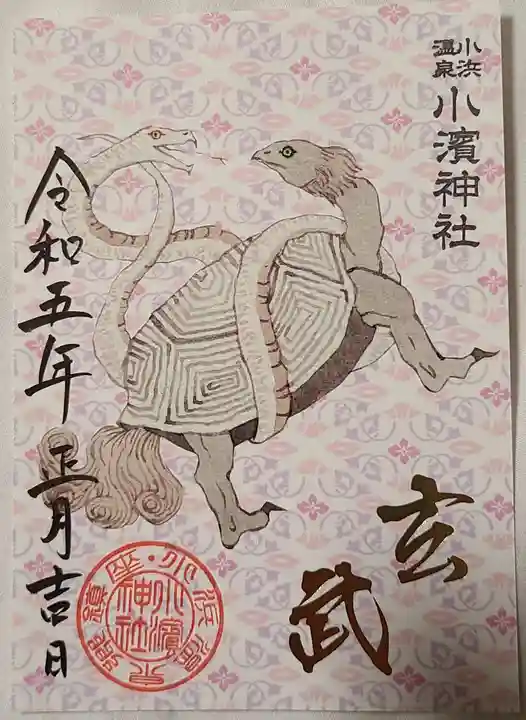 小浜
温泉
小濱神社
玄武
令和五年 正月吉日
小濱
神社